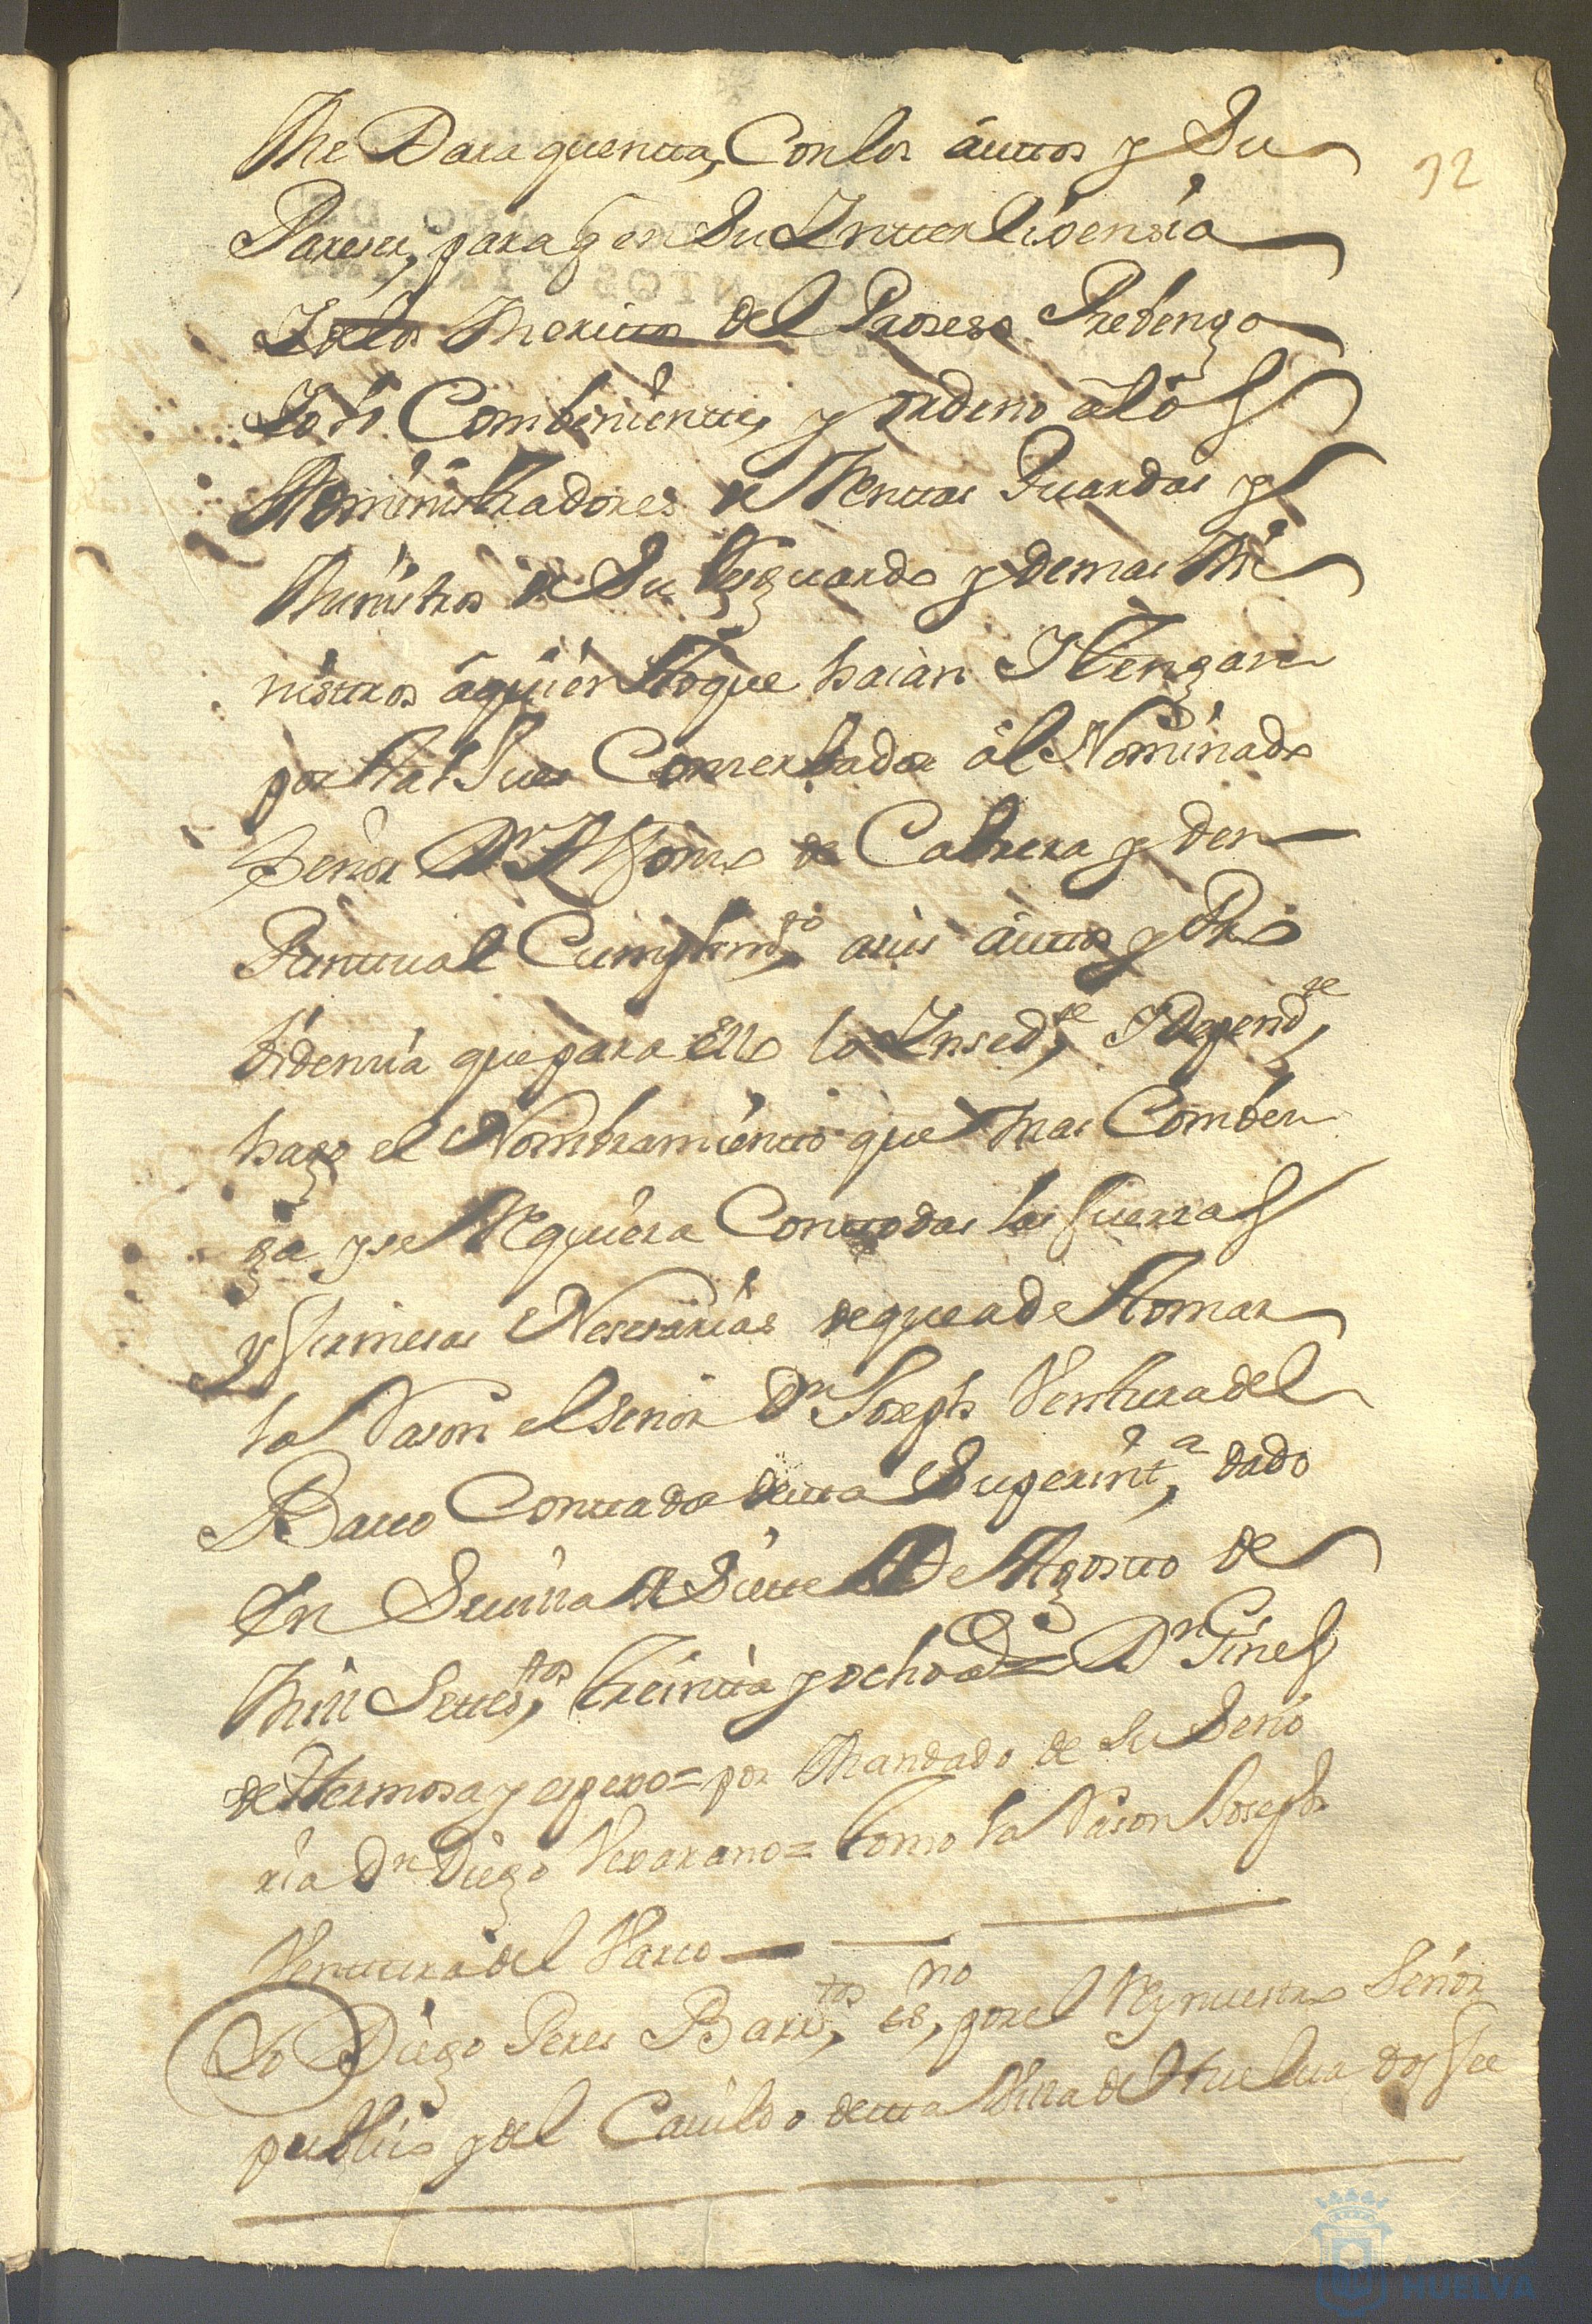 Me Dara quentta, Con los auttos y Su
12
Pareser, para q en Su Ynttelixensia
Y de los Merittos del Proseso Prebengo
lo Combenientte, y ordeno a los
Administradores de Renttas Guardas y
Ministros de Su Resguardo y demas Mi
nisttros a quien ttoque haian Y tengan
por ttal Jues Comserbador al Nominado
Señor Dn Alfonso de Cabrera y den
Punttual Cumplimto, a sus auttos y Pro
bidencia que para Ello lo Ynsedte, Y Dependte,
hago el Nombramientto que mas Comben
ga y se Requiera Con ttodas las fuerzas
y firmesas Nesesarias de que a de ttomar
la Rason el Señor Dn Joseph Ventura del
Barco Conttador desta Superinta, dado
En Sevilla a Siette de Agostto de
Mill Settestos, treintta y ocho as = Dn Gines
de Hermosa y espexo = por Mandado de Su Seño
ria Dn Diego Bexarano = tomo la Rason Joseph
Ventura del Varco
Yo Diego Peres Barrtos, esno, por el Rey nuestro Señor
publico y del Cavildo desta Villa de Huelva doi fee
HUELVA